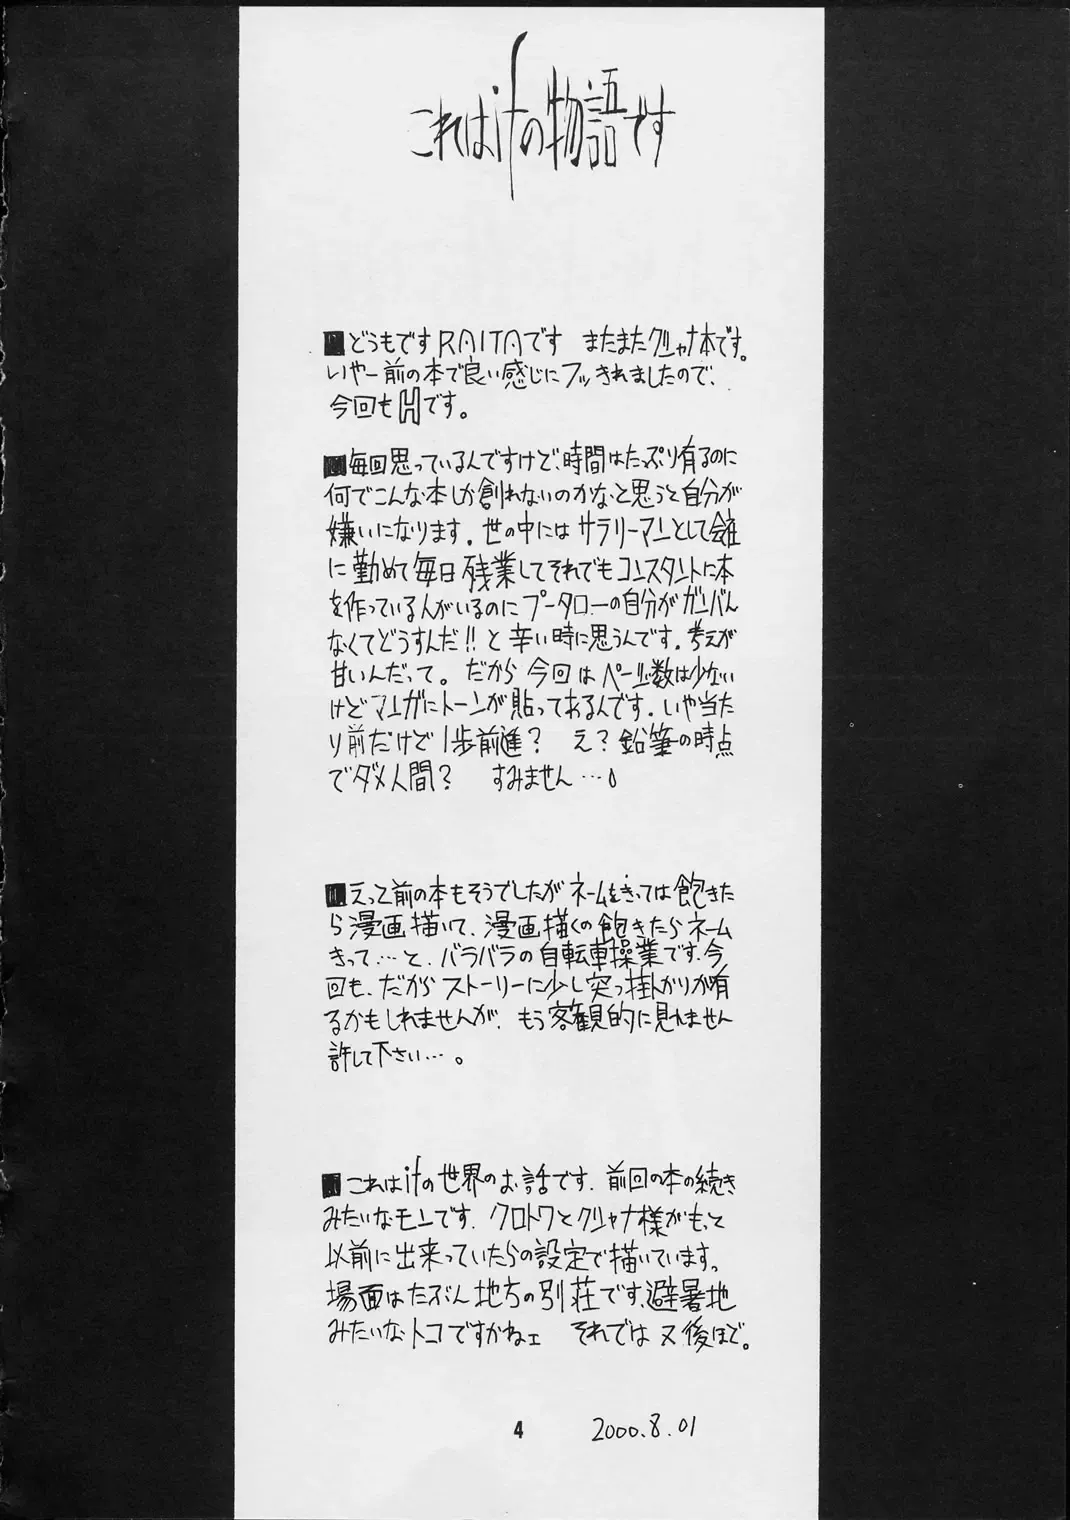 これはifの物語です
■どうもですRAITAです またまたクシャナ本です。
いやー前の本で良い感じにフッきれましたので、
今回もHです。
■毎回思っているんですけど、時間はたっぷり有るのに
何でこんな本しか創れないのかなと思うと自分が
嫌いになります。世の中にはサラリーマンとして会社
に勤めて毎日残業してそれでもコンスタントに本
を作っている人がいるのにプータローの自分がガンバん
なくてどうすんだ!!と辛い時に思うんです。考えが
甘いんだって。だから今回はページ数は少ない
けどマンガにトーンが貼ってあるんです。いや当た
り前だけど1歩前進? え?鉛筆の時点
でダメ人間? すみません…。
■えっと前の本もそうでしたがネームをきっては飽きた
ら漫画描いて、漫画描くの飽きたらネーム
きって…と、バラバラの自転車操業です。今
回も、だからストーリーに少し突っ掛かりが有
るかもしれませんが、もう客観的に見れません
許して下さい…。
■これはifの世界のお話です。前回の本の続き
みたいなモンです。クロトワとクシャナ様がもっと
以前に出来っていたらの設定で描いています。
場面はたぶん地方の別荘です、避暑地
みたいなトコですかねェ それでは又後ほど。
4 2000.8.01